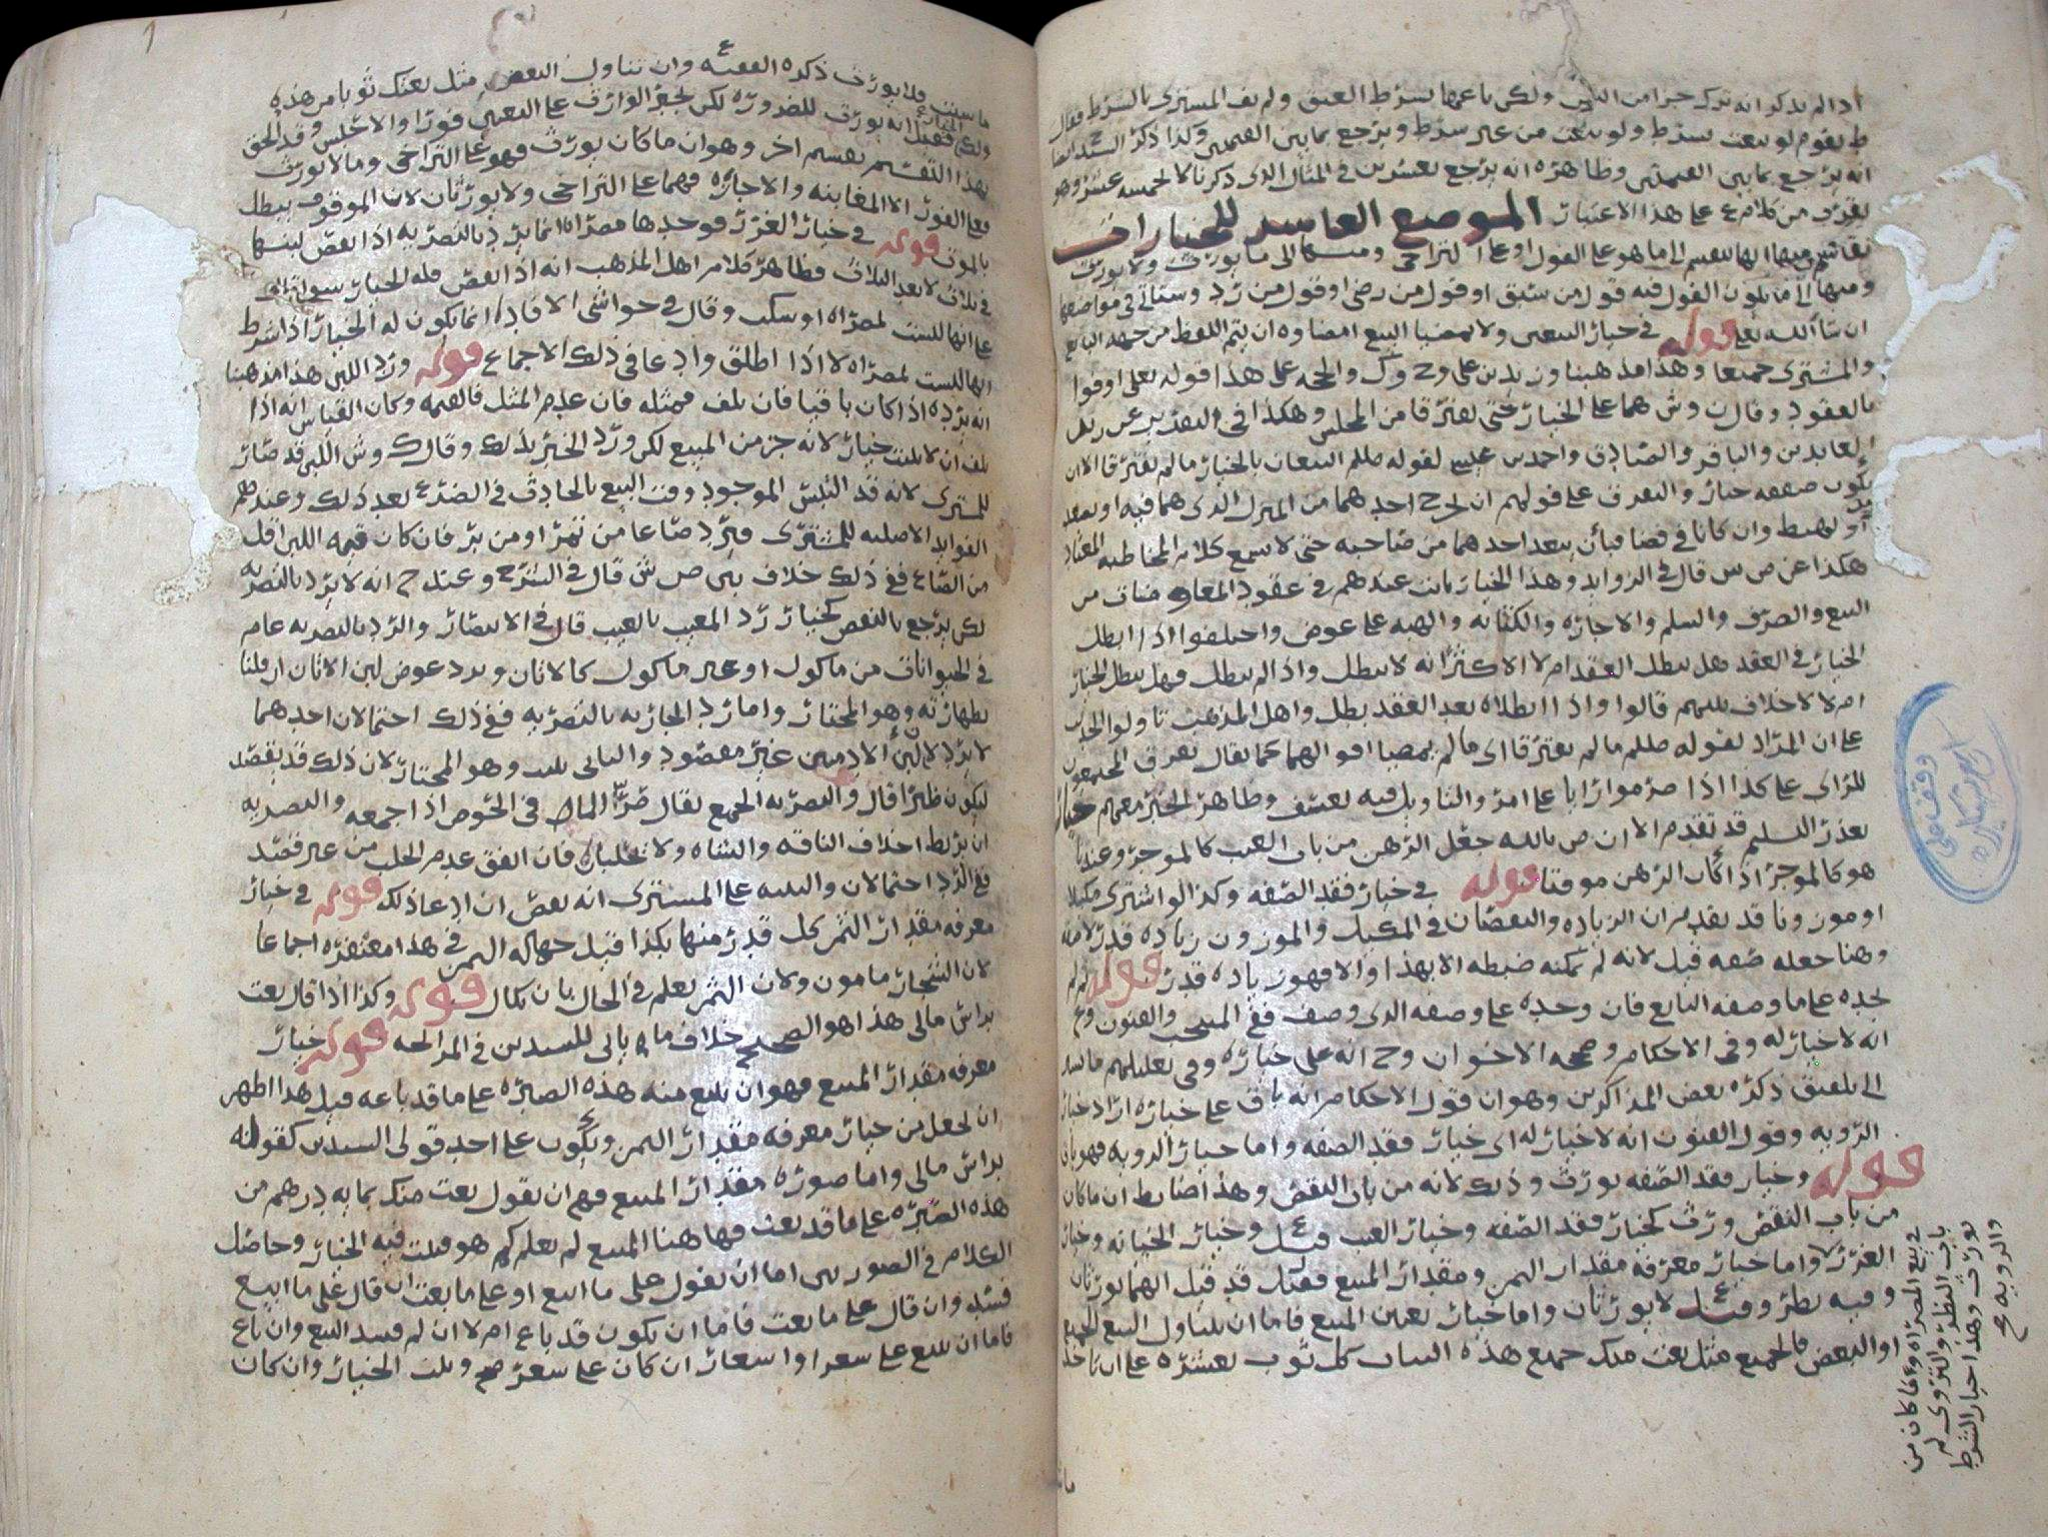 اذا لم يذكر انه ترك جزا من الثمن ولكن باعها بشرط العتق ولم يف المشتري بالشرط فقال
ط يقوم لو بيعت بشرط ولو بيعت من غير شرط ويرجع بما بين القيمتين وكذا ذكر
انه يرجع بما بين القيمتين وظاهره انه يرجع بعشرين في المثال الذي ذكرنا لا لخمسه عشر وهو
من كلام ع على هذا الاعتبار الموضع العاشر للخيارات
منها انها تنقسم الى ما هو على الفور او على التراخي ومنها الى ما يورث ولا يورث
ومنها الى ما يكون القول فيه قول من سبق او قول من رضي او قول من رد وستاتي في مواضعها
ان شا الله تعلى قوله في خيار البيعين ولا يمضيا البيع امضاوه ان يتم اللفظ من جهه البايع
والمشتري جميعا وهذا مذهبنا وزيد بن علي وح وك والحجه على هذا قوله تعلى اوفوا
بالعقود وقال ن وش هما على الخيار حتى يفترقا من المجلس وهكذا في التقرير عن زين
العابدين والباقر والصادق واحمد بن عيسى لقوله صللم البيعان بالخيار ما لم يفترقا الا ان
يكون صفقه خيار والتفرق على قولهم ان يخرج احدهما من المنزل الذي هما فيه او يصعد
او يهبط وان كانا في فضا فبأن يبعد احدهما من صاحبه حتى لا يسمع كلام المخاطبه المعتاد
هكذا عن ص ش قال في الزوايد وهذا الخيار ثابت عندهم في عقود المعاوضات من
البيع والصرف والسلم والاجاره والكتابه والهبه على عوض واختلفوا اذا ابطل
الخيار في العقد هل يبطل العقد ام لا الاكثر انه لا يبطل واذا لم يبطل فهل يبطل الخيار
ام لا لا خلاف بينهم قالوا واذا ابطلاه بعد العقد بطل واهل المذهب تاولوا الخبر
على ان المراد لقوله صللم ما لم يفترقا اي ما لم يمضيا اقوالهما كما يقال تفرق المجتمعون
للراي على كذا اذا صرموا رايا على امر والتاويل فيه تعسف وظاهر الخبر معهم خيار
تعذر التسليم قد تقدم الا ان ص بالله جعل الرهن من باب العيب كالموجر وعندنا
هو كالموجر اذا كان الرهن موقتا قوله في خيار فقد الصفه وكذا لو اشترى مكيلا
او موزونا قد تقدم ان الزياده والنقصان في المكيل والموزون زياده قدر لا صفه
وهنا جعله صفه قيل لانه لم يمكنه ضبطه الا بهذا والا فهو زياده قدر قوله لم
يجده على ما وصفه البايع فان وجده على وصفه الذي وصف ففي المنتخب والفنون وع
انه لا خيار له وفي الاحكام وصححه الاخوان وح انه على خياره وفي تعليلهم ما يشير
الى تلفيق ذكره بعض المذاكرين وهو ان قول الاحكام انه باق على خياره اراد خيار
الرويه وقول الفنون انه لا خيار له اي خيار فقد الصفه واما خيار الرويه فهو باق
قوله وخيار فقد الصفه يورث وذلك لانه من باب النقص وهذا ضابط ان ما كان
من باب النقص ورث كخيار فقد الصفه وخيار العيب قيل ع وخيار الخيانه وخيار
الغرر لا واما خيار معرفه مقدار الثمن ومقدار المبيع فقيل قد قيل انهما يورثان
وفيه نظر وقيل ع لا يورثان واما خيار تعيين المبيع فاما ان يتناول البيع الجميع
او البعض فالجميع مثل بعت منك جميع هذه الثياب كل ثوب بعشره على ان تاخذ
في بيع المصراه وما كان من
باب النظر والتروي لم
يورث وهذا خيار الشرط
والرويه ع
وقف على
ما شيت فلا يورث ذكره الفقيه ع وان تناول البعض مثل بعتك ثوبا من هذه
الثياب
ولك فقيل انه يورث للضروره لكن يجبر الوارث على التعيين فورا والا حبس وقد الحق
بهذا التقسيم تقسيم اخر وهو ان ما كان يورث فهو على التراخي وما لا يورث
فعلى الفور الا المغابنه والاجازه فهما على التراخي ولا يورثان لان الموقوف يبطل
بالموت قوله في خيار الغرر فوجدها مصراه انما يرد بالتصريه اذا نقص لبنها
في ثلاث لا بعد الثلاث فظاهر كلام اهل المذهب انه اذا نقص فله الخيار سوا شرط
على انها ليست بمصراه او سكت وقال في حواشي الافاده انما يكون له الخيار اذا شرط
انها ليست بمصراه لا اذا اطلق وادعا في ذلك الاجماع قوله ورد اللبن هذا مذهبنا
انه يرده اذا كان باقيا فان تلف فمثله فان عدم المثل فالقيمه وكان القياس انه اذا
تلف ان لا يثبت خيار لانه جز من المبيع لكن ورد الخبر بذلك وقال ك وش اللبن قد صار
للمشتري لانه قد التبس الموجود وقت البيع بالحادث في الضرع بعد ذلك وعندهم
الفوايد الاصليه للمشتري فيرد صاعا من تمر او من بر فان كان قيمه اللبن اقل
من الصاع ففي ذلك خلاف بين ص ش قال في الشرح وعند ح انه لا يرد بالتصريه
لكن يرجع بالنقص كخيار رد المعيب بالعيب قال في الانتصار والرد بالتصريه عام
في الحيوانات من ماكول او غير ماكول كالاتان ويرد عوض لبن الاتان ان قلنا
بطهارته وهو المختار واما رد الجاريه بالتصريه ففي ذلك احتمالان احدهما
لا يرد لان لبن الادميين غير مقصود والثاني يثبت وهو المختار لان ذلك قد يقصد
ليكون ظيرا قال والتصريه الجمع يقال صريت الما في الحوض اذا جمعه والتصريه
ان يربط اخلاف الناقه والشاه ولا تحلبان فان اتفق عدم الحلب من غير قصد
ففي الرد احتمالان والبينه على المشتري انه نقص ان ادعا ذلك قوله في خيار
معرفه مقدار الثمن كل قدر منها بكذا قيل جهاله الثمن في هذا مغتفره اجماعا
لان الشجار مامون ولان الثمن يعلم في الحال بان يكال قوله وكذا اذا قال بعت
براس مالي هذا هو الصحيح خلاف ما ياتي للسيدين في المرابحه قوله خيار
معرفه مقدار المبيع فهو ان يبيع منه هذه الصبره على ما قد باعه قيل هذا اظهر
ان يجعل من خيار معرفه مقدار الثمن ويكون على احد قولي السيدين كقوله
براس مالي واما صوره مقدار المبيع فهي ان يقول بعت منك بمايه درهم من
هذه الصبره على ما قد بعت فها هنا المبيع لم يعلم كم هو فثبت فيه الخيار وحاصل
الكلام في الصورتين اما ان يقول على ما ابيع او على ما بعت ان قال على ما ابيع
فسد وان قال على ما بعت فاما ان يكون قد باع ام لا ان لم فسد البيع وان باع
فاما ان يبيع على سعر او اسعار ان كان على سعر صح ويثبت الخيار وان كان